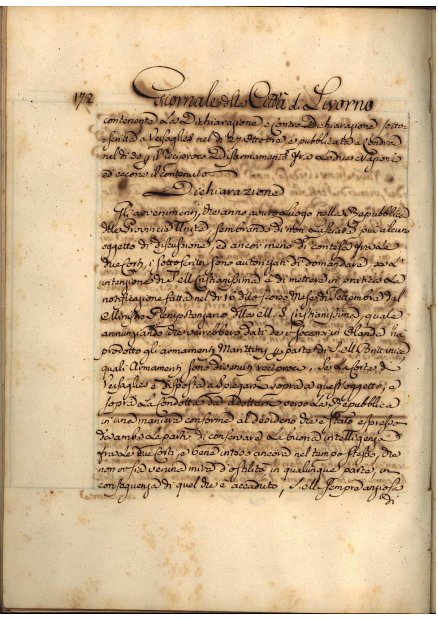 172 Giornale della Città di Livorno
contenente La Dichiarazione e Contro Dichiarazione sotto-
scritta a Versaglies nel dì 27 Ottobre e pubblicata a Londra
nel dì 30 Reciproco Disarmamento fra le due Nazioni
ed eccone il contenuto
Dichiarazione
Gli avvenimenti, che anno avuto luogo nella Repubblica
delle Provincie Unite, sembrando di non Lasciare più alcun
oggetto di discussione, ed ancor meno di contesa fra le
due Corti, i sottoscritti sono autorizati di domandare, se
intenzione di S. M. Cristianissima di mettere in pratica La
notificazione fatta nel dì 16 dello scorso Mese di Settembre dal
Ministro Plenipotenziario della M. S. Cristianissima, quale
annunziando che verrebbero dati de i soccorsi in Olanda ha
prodotto gli armamenti Marittimi a parte di S. M. Britannica
quali Armamenti sono divenuti reciprochi. Se La Corte di
Versaglies è disposta a spiegarsi sopra a quest'oggetto, e
sopra La Condotta da Adottarsi verso La Repubblica
in una maniera conforme al desiderio che è stato espresso
da ambe Le parti di conservare La buona intelligenza
fra Le due Corti, e bene inteso ancora nel tempo stesso, che
non vi sia veruna mira d'ostilità in qualunque parte, in
conseguenza di quel che è accaduto, S. M. sempre ansiosa
di